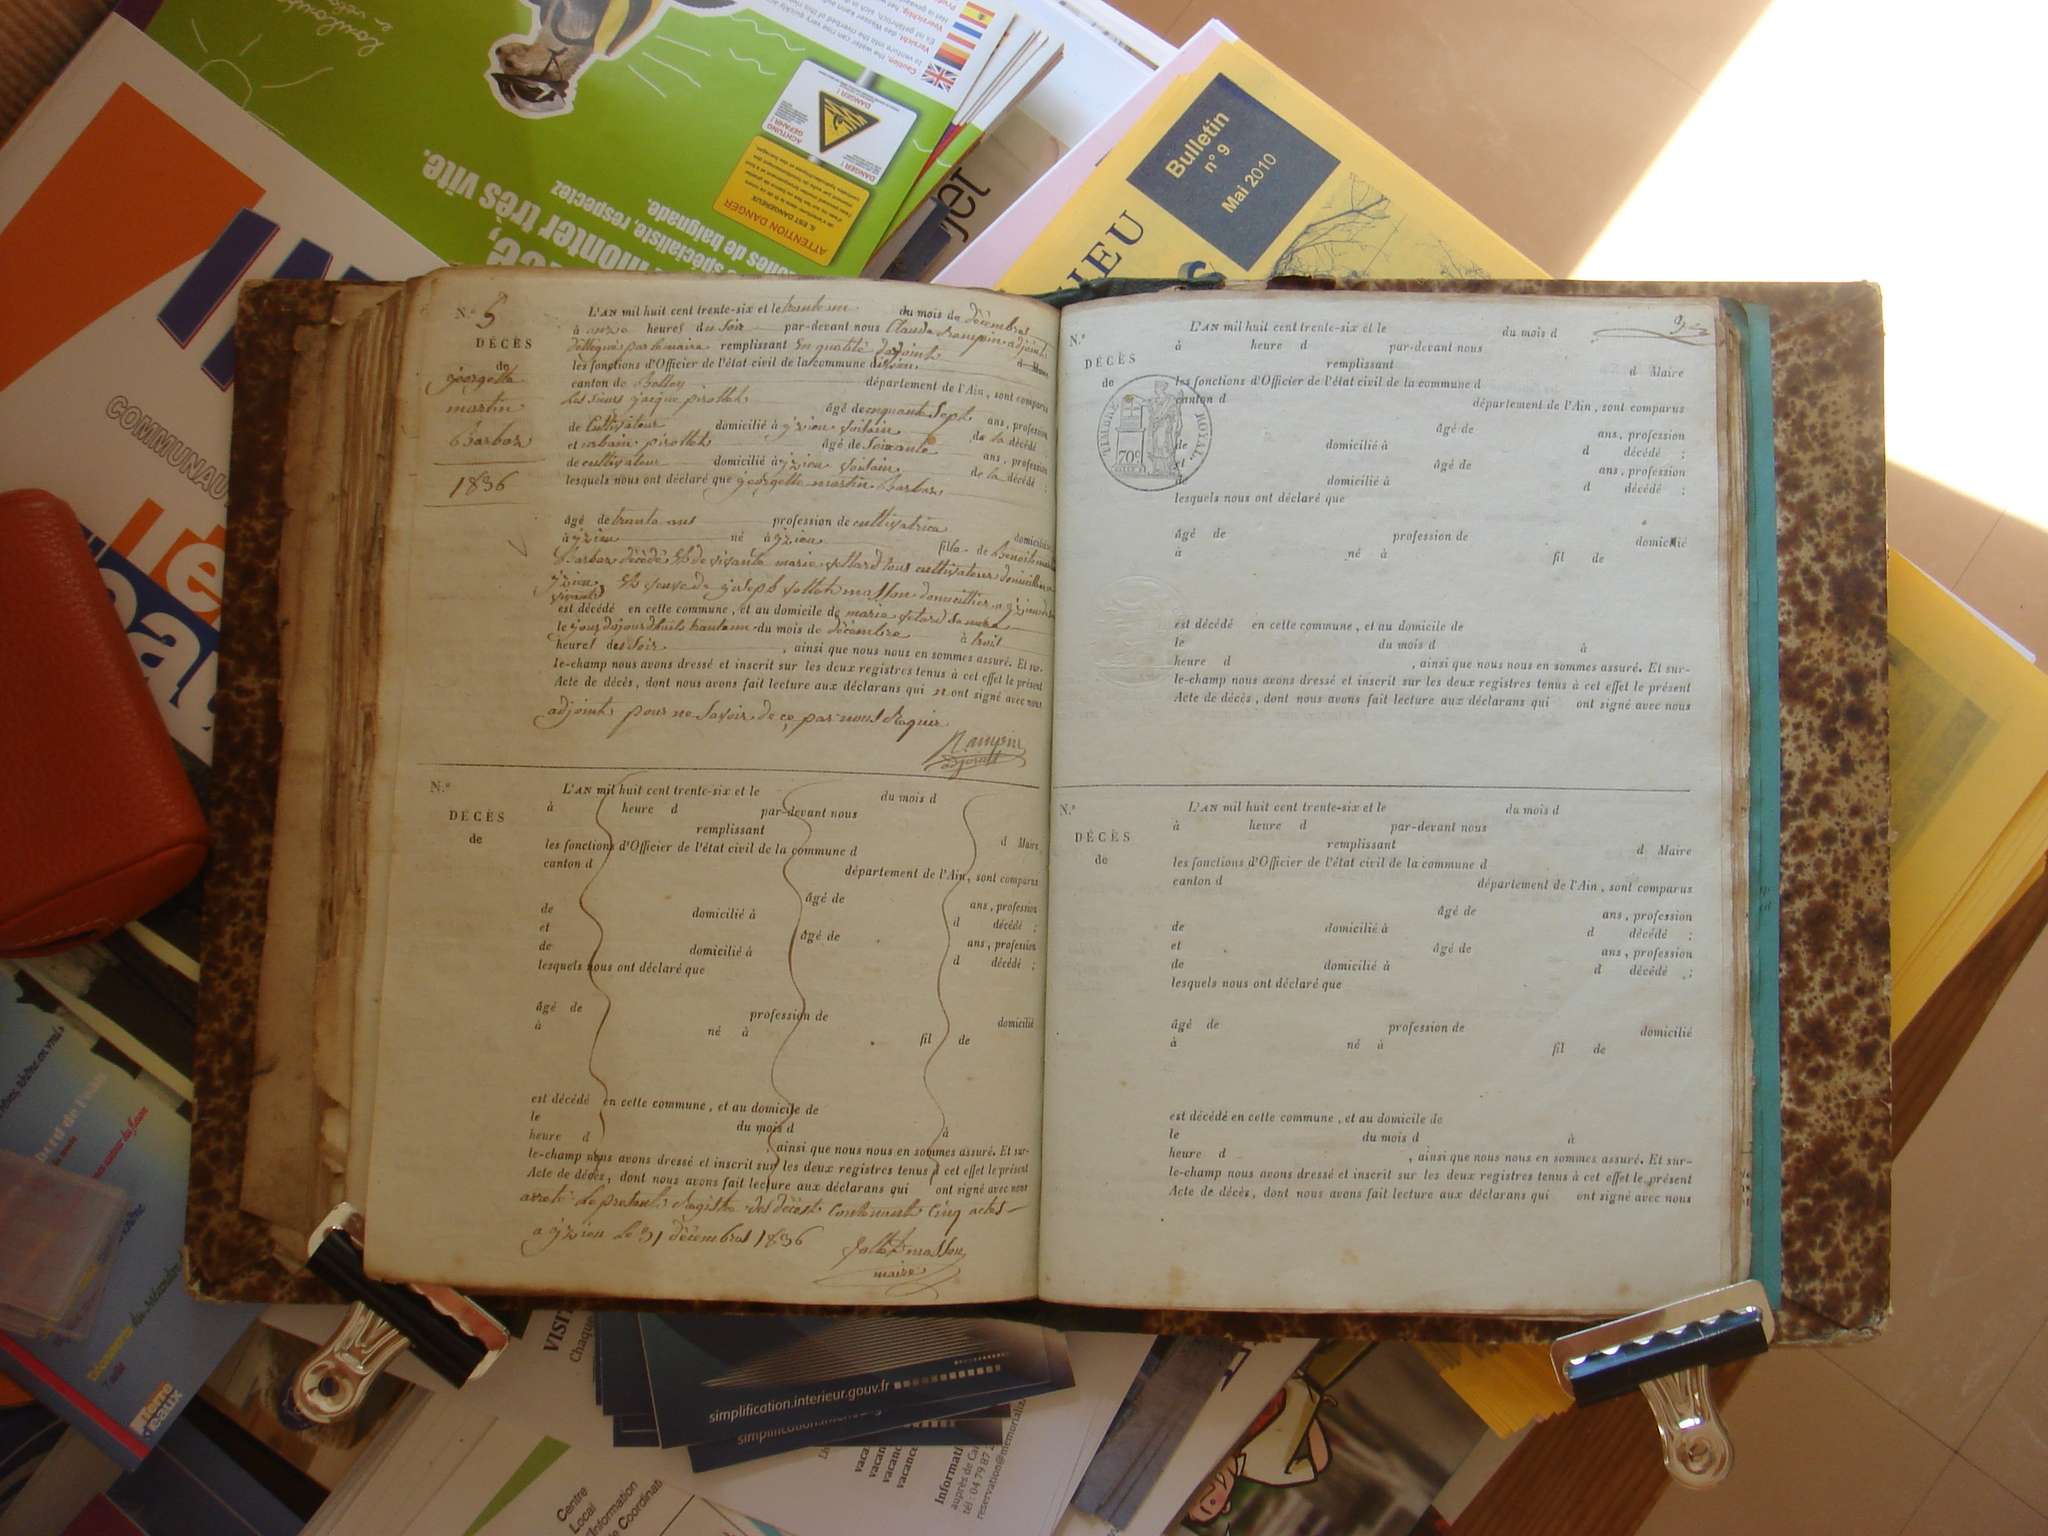 Bulletin
n° 9
Mai 2010
IEU
ATTENTION DANGER
DANGER !
monter très vite.
COMMUNAU
N.° 5
DÉCÈS
de
georgette
martin
Barbaz
1836
L'AN mil huit cent trente-six et le trente un du mois de décembres
à onze heures du soir par-devant nous Claude Rampin adjoint
délégué par le maire remplissant en qualité d'adjoint d Maire
les fonctions d'Officier de l'état civil de la commune
canton de Belley département de l'Ain, sont comparus
les sieurs jacque pirollet âgé de cinquante sept ans, profession
de Cultivateur domicilié à yzieu voisin de la décédé ;
et urbain pirollet âgé de soixante ans, profession
de cultivateur domicilié à yzieu voisin de la décédé ;
lesquels nous ont déclaré que georgette martin Barbaz
âgé de trante ans profession de cultivatrice domicilié
à yzieu né à yzieu fille de Benoit martin
Barbaz décédé et de vivante marie vettard tous cultivateur domicillier a
yzieu et veuve de joseph sollet masson domicillier a yzieu
est décédé en cette commune, et au domicile de marie vetard sa mère
le jour dojourdhuit trante un du mois de décembre à troit
heures de soir , ainsi que nous nous en sommes assuré. Et sur-
le-champ nous avons dressé et inscrit sur les deux registres tenus à cet effet le présent
Acte de décès, dont nous avons fait lecture aux déclarans qui n ont signé avec nous
adjoint pour ne savoir de ce par nous Requis
Rampin
adjoint
N.°
DÉCÈS
de
L'AN mil huit cent trente-six et le du mois d
à heure d par-devant nous
remplissant d Maire
les fonctions d'Officier de l'état civil de la commune d
canton d département de l'Ain, sont comparus
âgé de ans, profession
de domicilié à d décédé ;
et âgé de ans, profession
de domicilié à d décédé ;
lesquels nous ont déclaré que
âgé de profession de domicilié
à né à fil de
est décédé en cette commune, et au domicile de
le du mois d à
heure d , ainsi que nous nous en sommes assuré. Et sur-
le-champ nous avons dressé et inscrit sur les deux registres tenus à cet effet le présent
Acte de décès, dont nous avons fait lecture aux déclarans qui ont signé avec nous
arreté le présent Registre des décest Contenant Cinq actes
a yzieu le 31 décembres 1836
Sollet masson
maire
N.°
DÉCÈS
de
TIMBRE ROYAL
70c
L'AN mil huit cent trente-six et le du mois d
à heure d par-devant nous
remplissant d Maire
les fonctions d'Officier de l'état civil de la commune d
canton d département de l'Ain, sont comparus
âgé de ans, profession
de domicilié à d décédé ;
et âgé de ans, profession
de domicilié à d décédé ;
lesquels nous ont déclaré que
âgé de profession de domicilié
à né à fil de
est décédé en cette commune, et au domicile de
le du mois d à
heure d , ainsi que nous nous en sommes assuré. Et sur-
le-champ nous avons dressé et inscrit sur les deux registres tenus à cet effet le présent
Acte de décès, dont nous avons fait lecture aux déclarans qui ont signé avec nous
N.°
DÉCÈS
de
L'AN mil huit cent trente-six et le du mois d
à heure d par-devant nous
remplissant d Maire
les fonctions d'Officier de l'état civil de la commune d
canton d département de l'Ain, sont comparus
âgé de ans, profession
de domicilié à d décédé ;
et âgé de ans, profession
de domicilié à d décédé ;
lesquels nous ont déclaré que
âgé de profession de domicilié
à né à fil de
est décédé en cette commune, et au domicile de
le du mois d à
heure d , ainsi que nous nous en sommes assuré. Et sur-
le-champ nous avons dressé et inscrit sur les deux registres tenus à cet effet le présent
Acte de décès, dont nous avons fait lecture aux déclarans qui ont signé avec nous
simplification.interieur.gouv.fr
Centre
Local
d'Information
de Coordinati